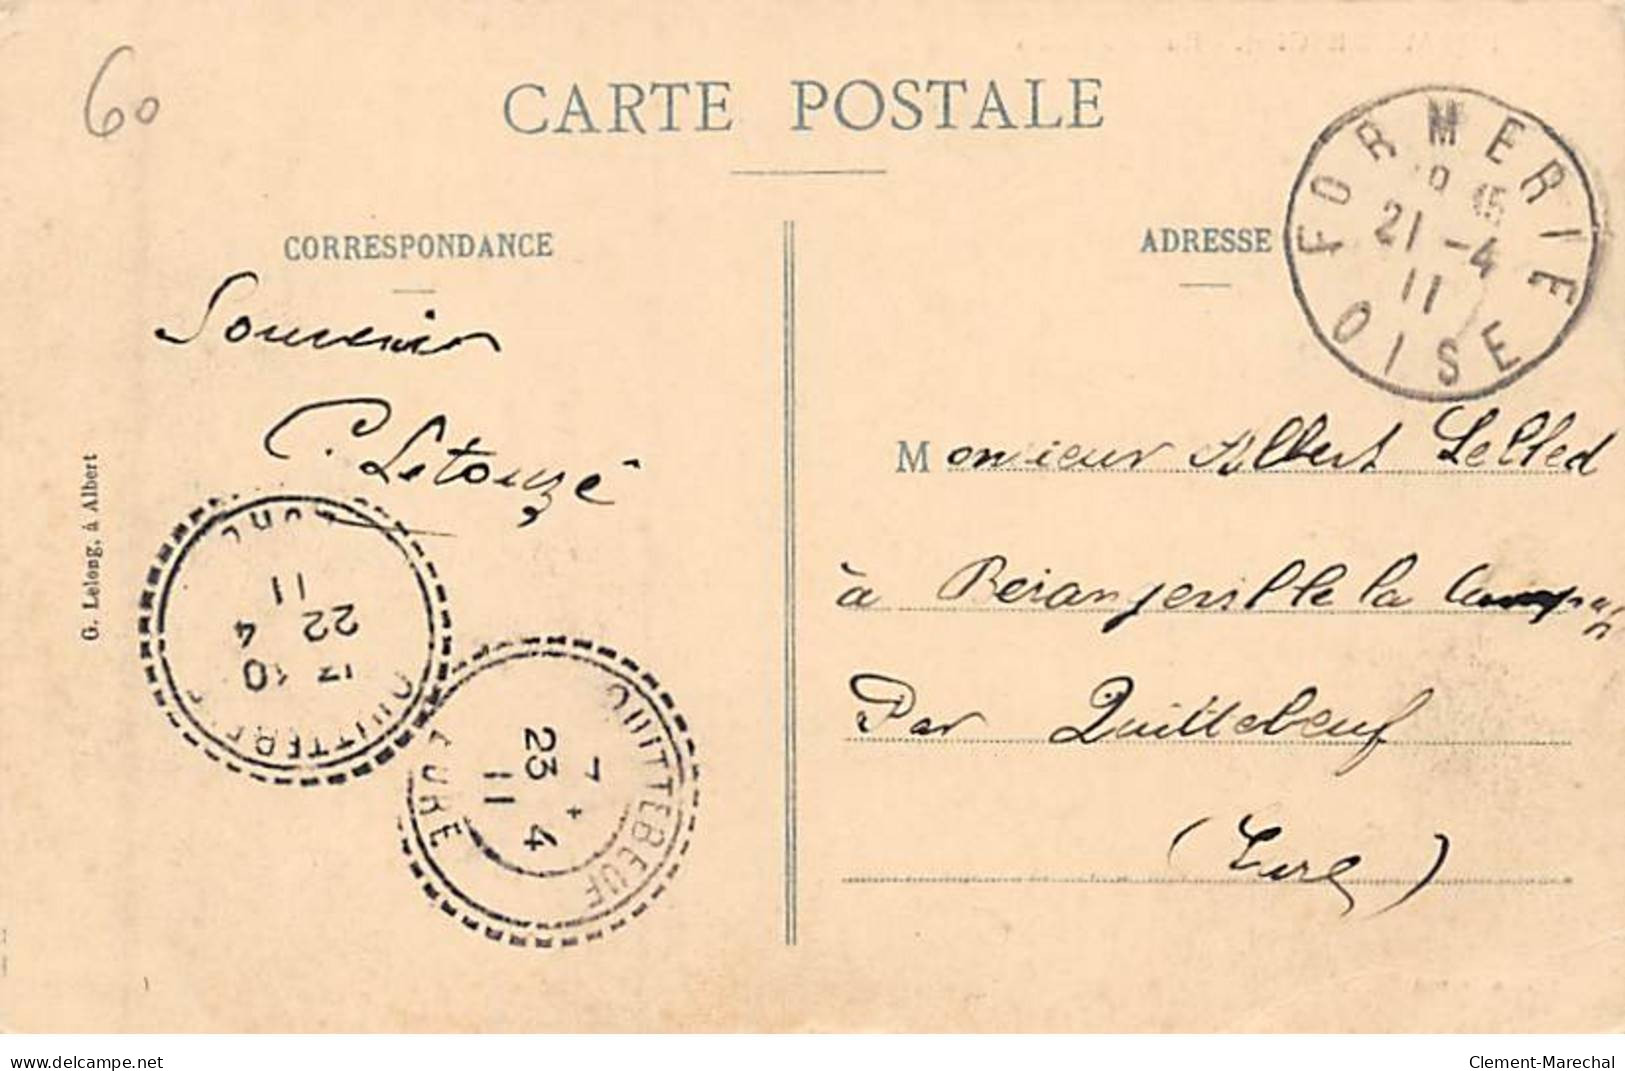 60
CARTE POSTALE
CORRESPONDANCE
ADRESSE
FORMERIE
15
21 -4
11
OISE
Souvenir
C. Letouzé
G. Lelong, à Albert
Monsieur Albert
à Berangerville la
Par Quittebeuf
(Eure)
EURE
11
22
4
QUITTEBEUF
QUITTEBEUF
7
23 4
11
EURE
www.delcampe.net
Clement-Marechal